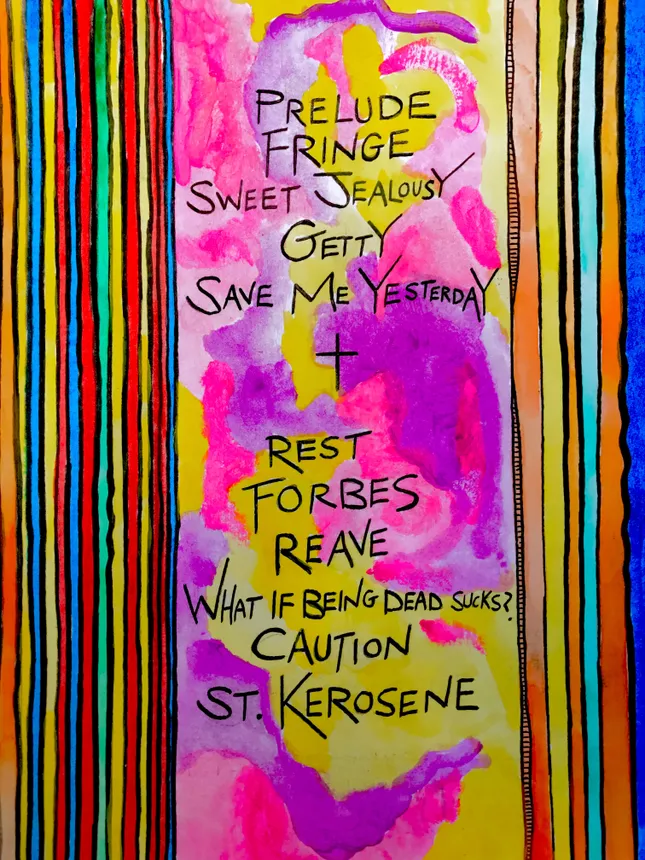 PRELUDE
FRINGE
SWEET JEALOUSY
GETTY
SAVE ME YESTERDAY
+
REST
FORBES
REAVE
WHAT IF BEING DEAD SUCKS?
CAUTION
ST. KEROSENE